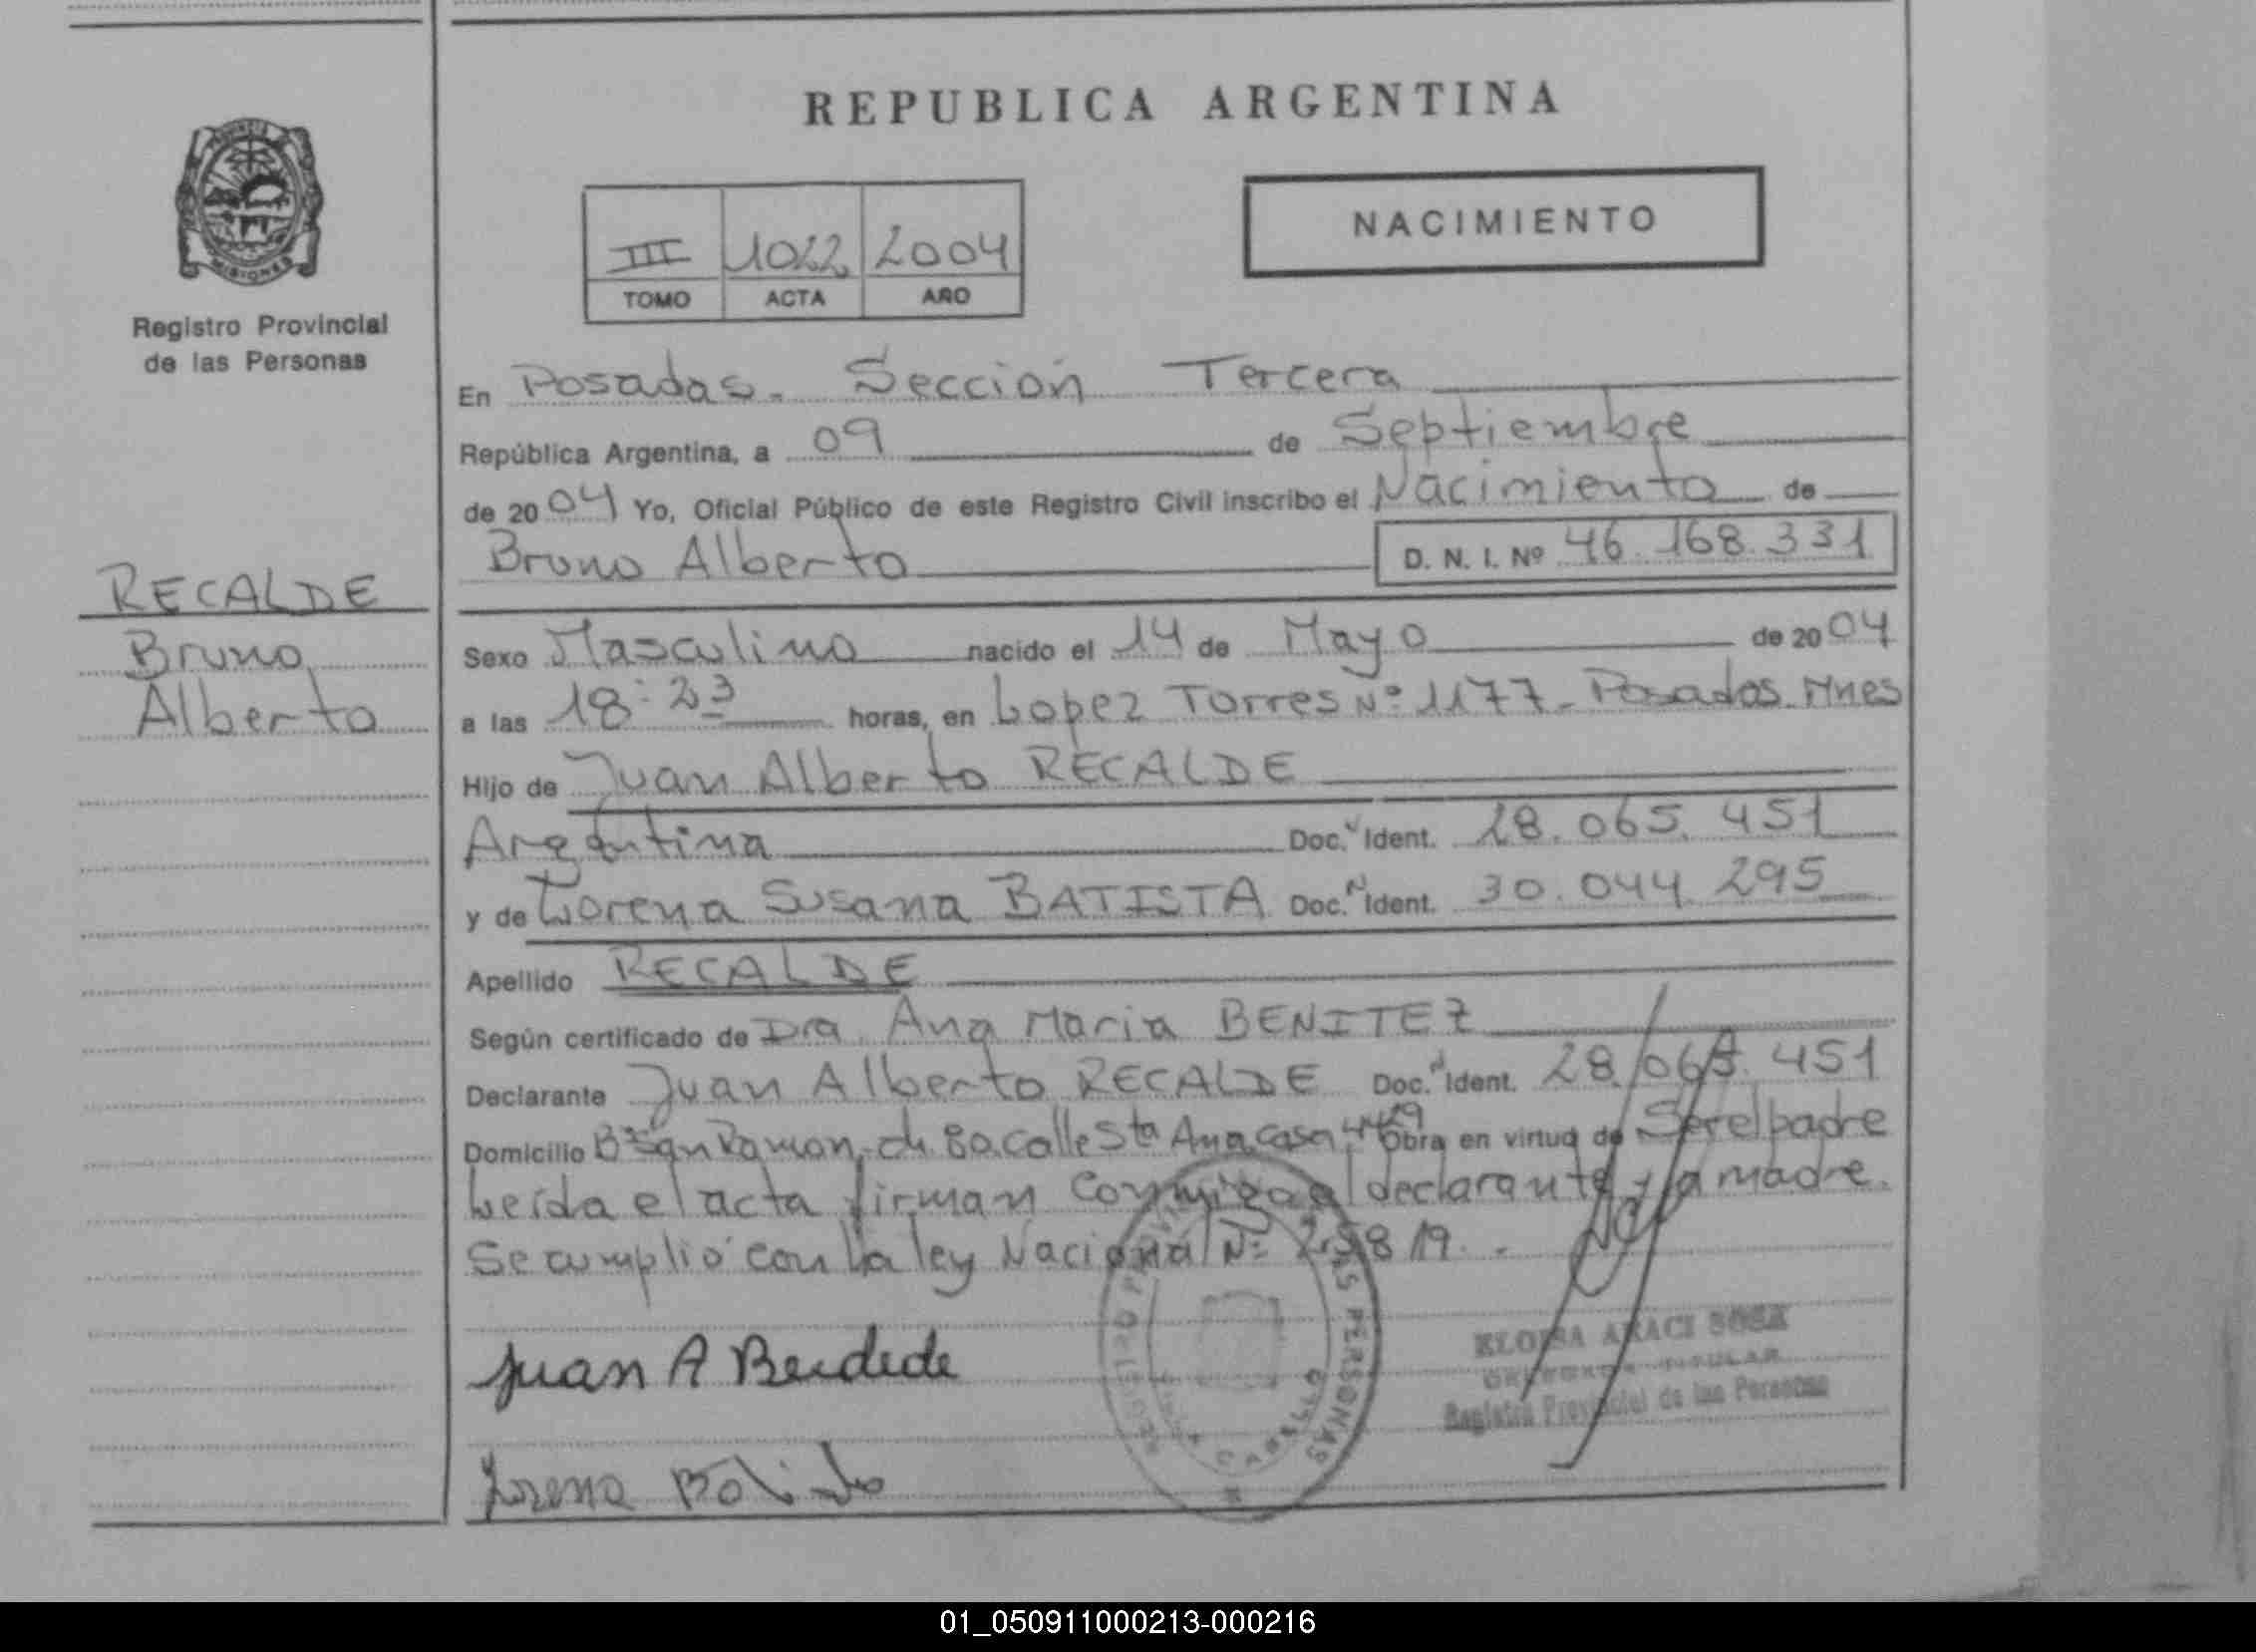 REPUBLICA ARGENTINA
PROVINCIA
MISIONES
Registro Provincial
de las Personas
III 1022 2004
TOMO ACTA AÑO
NACIMIENTO
En Posadas. Sección Tercera
República Argentina, a 09 de Septiembre
de 2004 Yo, Oficial Público de este Registro Civil inscribo el Nacimiento de
Bruno Alberto D. N. I. Nº 46.168.331
RECALDE
Bruno
Alberto
Sexo Masculino nacido el 14 de Mayo de 2004
a las 18:23 horas, en Lopez Torres Nº 1177 - Posadas. Mnes
Hijo de Juan Alberto RECALDE
Argentina Doc. Ident. 28.065.451
y de Lorena Susana BATISTA Doc. Ident. 30.044.295
Apellido RECALDE
Según certificado de Dra. Ana Maria BENITEZ
Declarante Juan Alberto RECALDE Doc. Ident. 28.065.451
Domicilio Bº San Ramon, ch. 80. Calle Sta Ana casa 4429 Obra en virtud de Ser el padre
Leída el acta firman conmigo el declarante y la madre.
Se cumplió con la ley Nacional Nº
Juan A
Lorena
ELOISA ARACI SOSA
Registro Provincial de las Personas
01_050911000213-000216